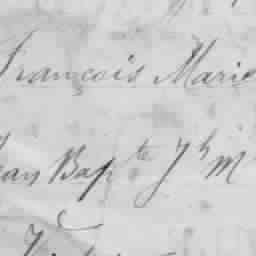 François Marie
Jean Bapte Jh M